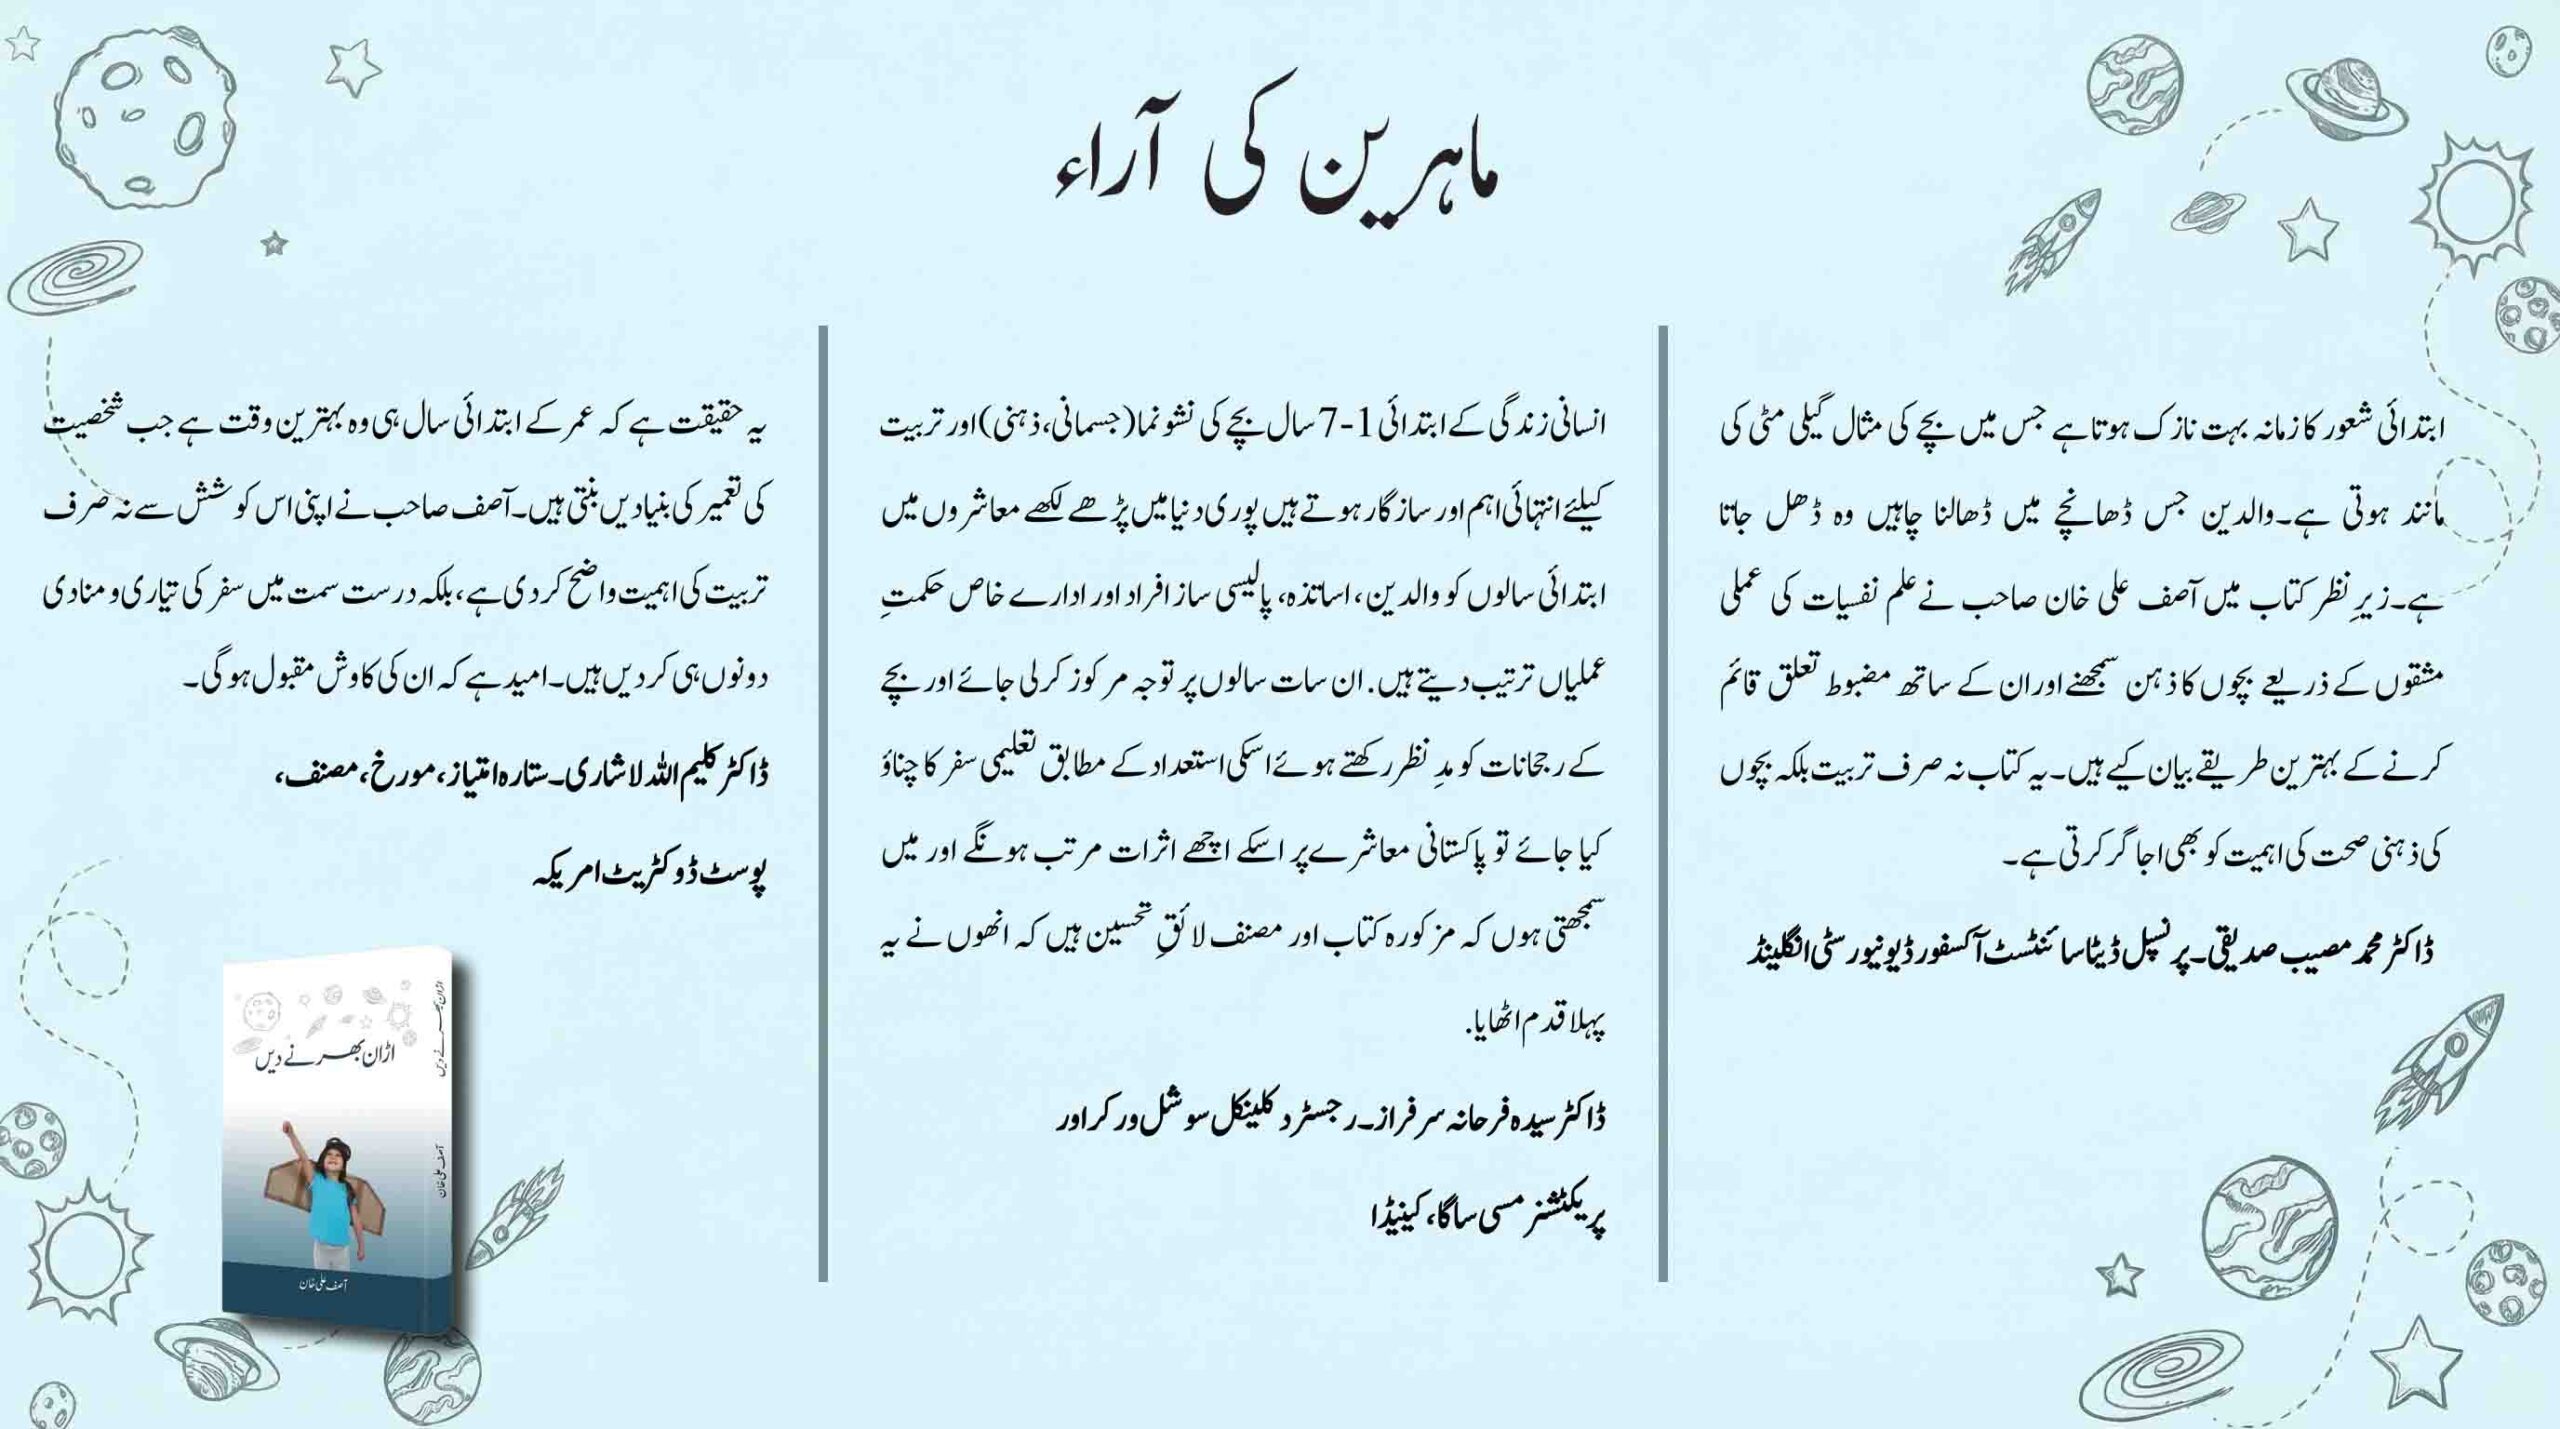 ماہرین کی آراء
ابتدائی شعور کا زمانہ بہت نازک ہوتا ہے جس میں بچے کی مثال گیلی مٹی کی
مانند ہوتی ہے۔والدین جس ڈھانچے میں ڈھالنا چاہیں وہ ڈھل جاتا
ہے۔زیرِ نظر کتاب میں آصف علی خان صاحب نے علم نفسیات کی عملی
مشقوں کے ذریعے بچوں کا ذہن سمجھنے اور ان کے ساتھ مضبوط تعلق قائم
کرنے کے بہترین طریقے بیان کیے ہیں۔یہ کتاب نہ صرف تربیت بلکہ بچوں
کی ذہنی صحت کی اہمیت کو بھی اجاگر کرتی ہے۔
ڈاکٹر محمد مصیب صدیقی۔پرنسپل ڈیٹا سائنٹسٹ آکسفورڈ یونیورسٹی انگلینڈ
انسانی زندگی کے ابتدائی 1-7 سال بچے کی نشوونما(جسمانی،ذہنی)اور تربیت
کیلئے انتہائی اہم اور سازگار ہوتے ہیں پوری دنیا میں پڑھے لکھے معاشروں میں
ابتدائی سالوں کو والدین، اساتذہ، پالیسی ساز افراد اور ادارے خاص حکمتِ
عملیاں ترتیب دیتے ہیں. ان سات سالوں پر توجہ مرکوز کر لی جائے اور بچے
کے رجحانات کو مدِ نظر رکھتے ہوئے اسکی استعداد کے مطابق تعلیمی سفر کا چناؤ
کیا جائے تو پاکستانی معاشرے پر اسکے اچھے اثرات مرتب ہونگے اور میں
سمجھتی ہوں کہ مزکورہ کتاب اور مصنف لائقِ تحسین ہیں کہ انھوں نے یہ
پہلا قدم اٹھایا.
ڈاکٹر سیدہ فرحانہ سرفراز۔رجسٹرد کلینکل سوشل ورکر اور
پریکٹشنر مسی ساگا، کینیڈا
یہ حقیقت ہے کہ عمر کے ابتدائی سال ہی وہ بہترین وقت ہے جب شخصیت
کی تعمیر کی بنیادیں بنتی ہیں۔آصف صاحب نے اپنی اس کوشش سے نہ صرف
تربیت کی اہمیت واضح کر دی ہے، بلکہ درست سمت میں سفر کی تیاری و منادی
دونوں ہی کر دیں ہیں۔امید ہے کہ ان کی کاوش مقبول ہوگی۔
ڈاکٹر کلیم اللہ لاشاری۔ستارہ امتیاز،مورخ،مصنف،
پوسٹ ڈوکٹریٹ امریکہ
اڑان بھرنے دیں
آصف علی خان
اڑان بھرنے دیں
آصف علی خان